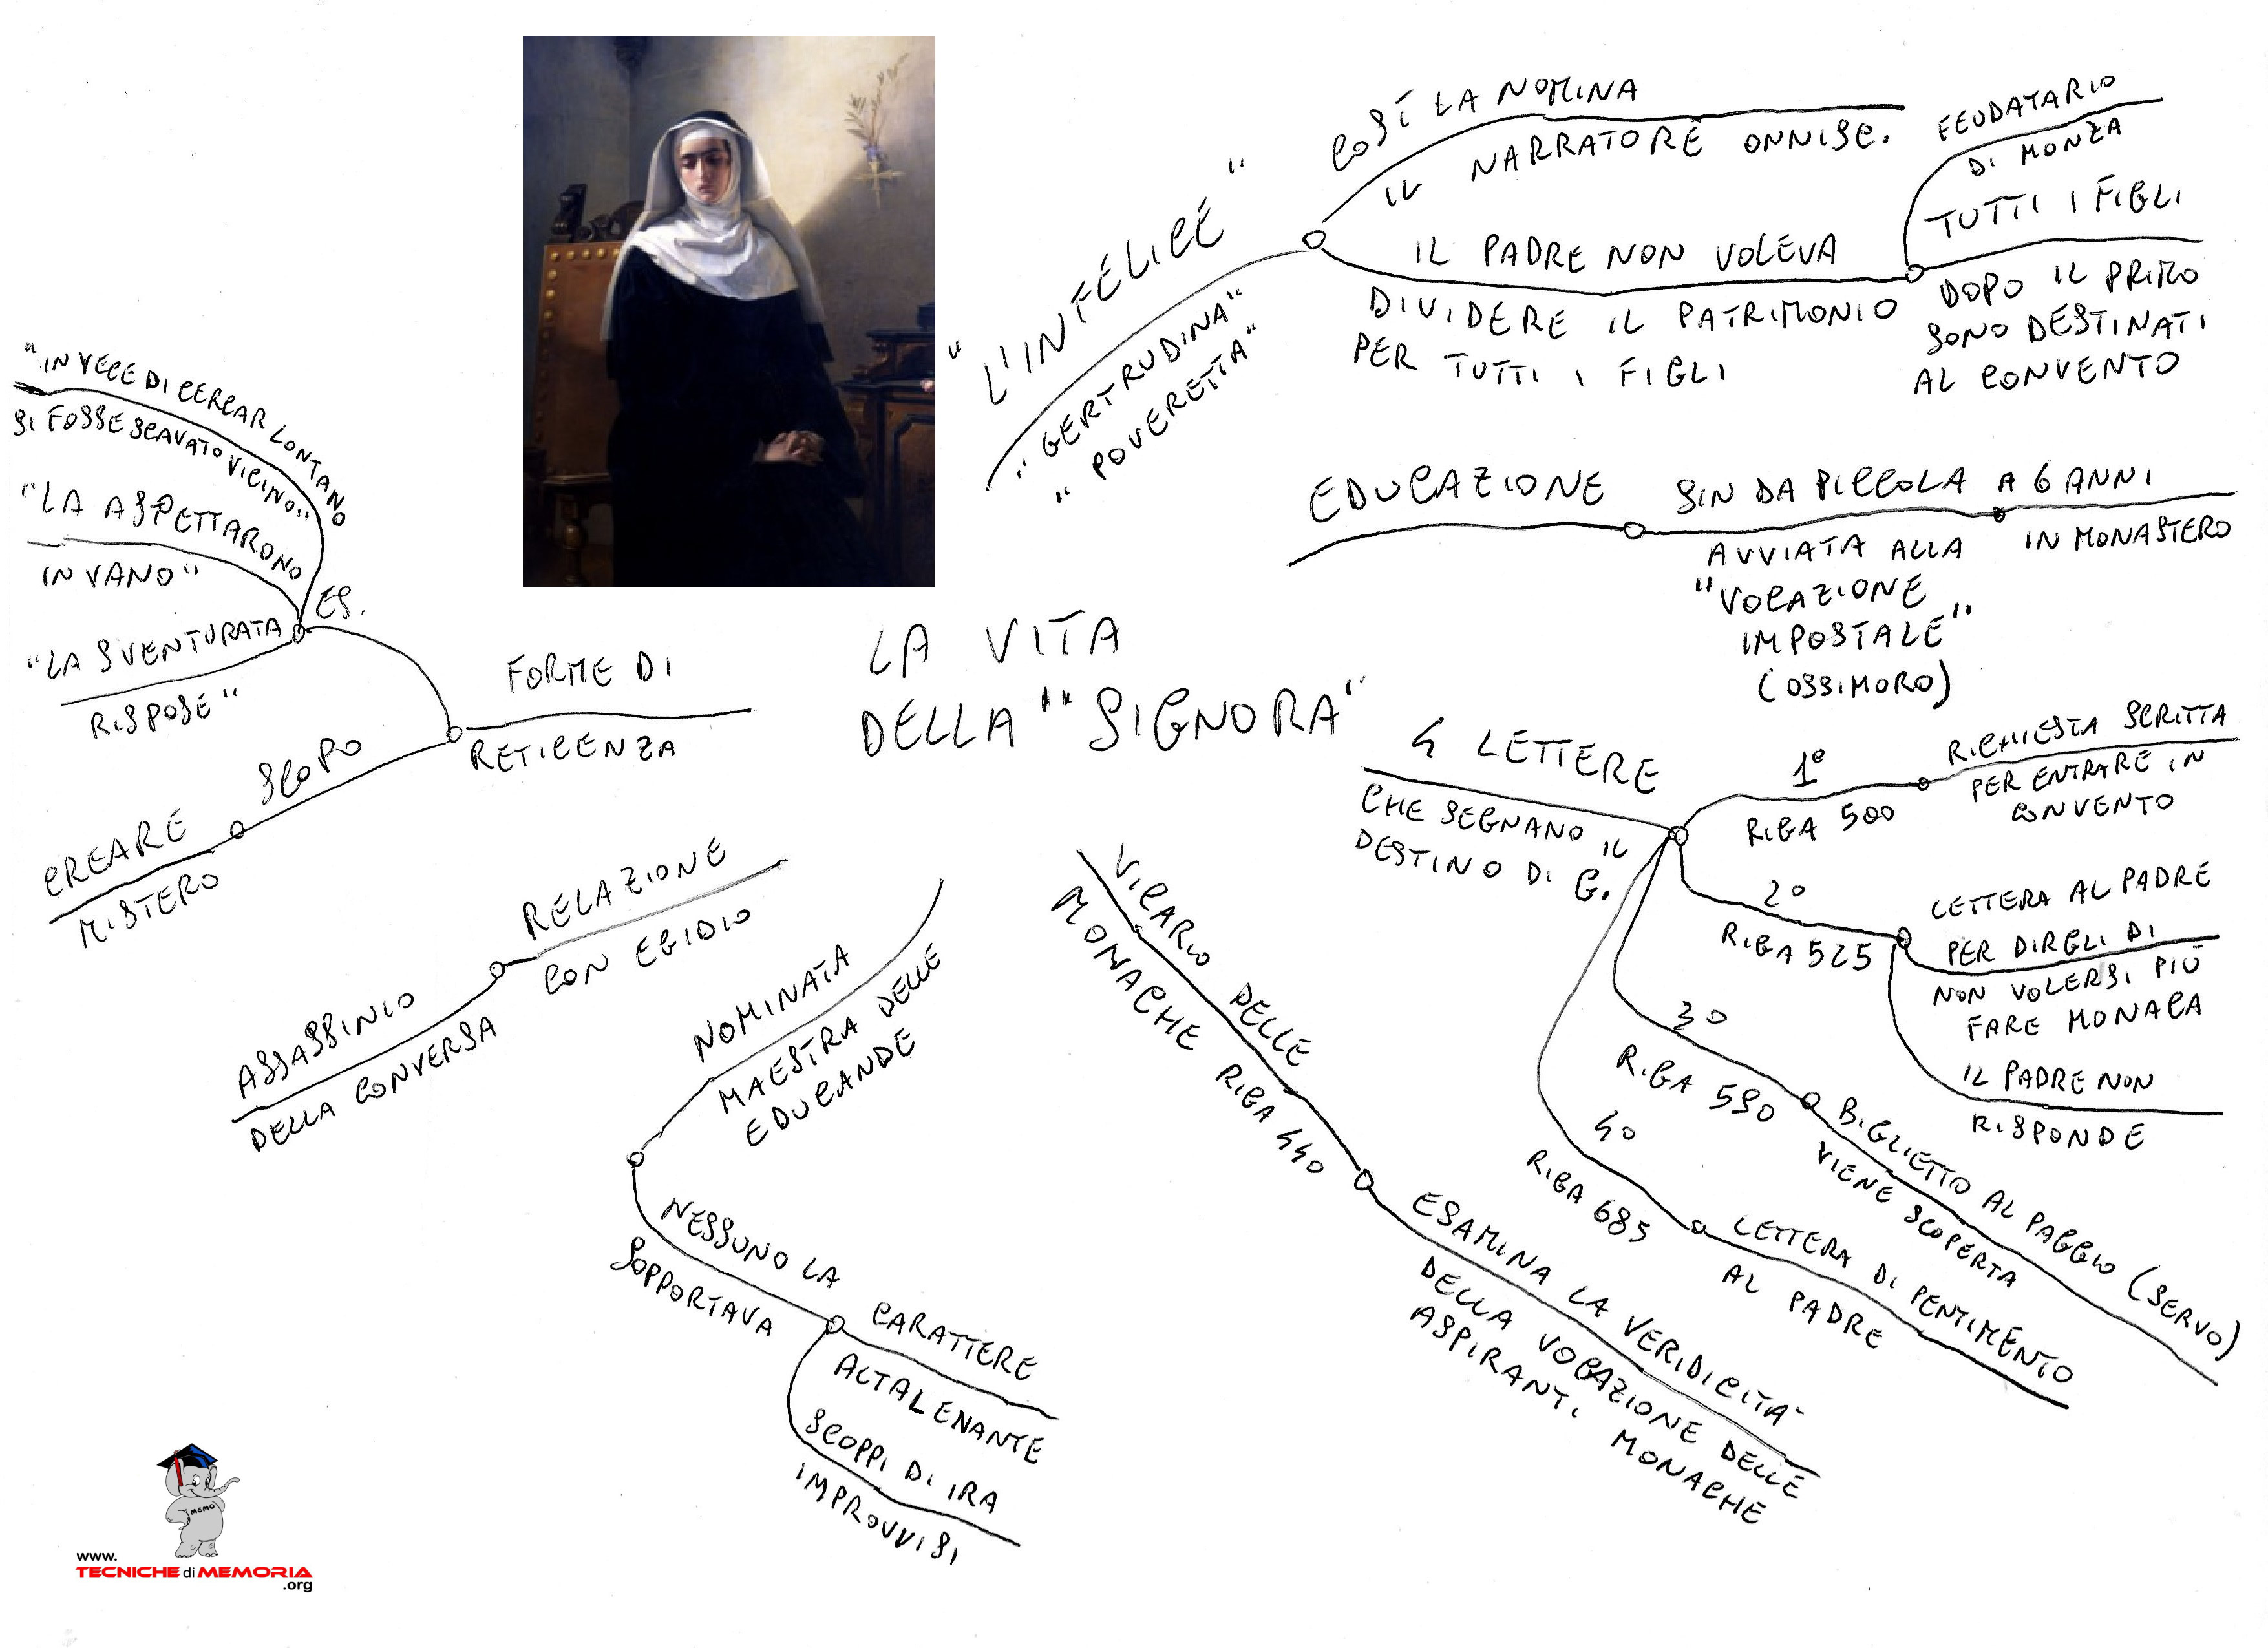 LA VITA
DELLA "SIGNORA"
"L'INFELICE"
"GERTRUDINA"
"POVERETTA"
COSÌ LA NOMINA
IL NARRATORE ONNISC.
IL PADRE NON VOLEVA
DIVIDERE IL PATRIMONIO
PER TUTTI I FIGLI
FEUDATARIO
DI MONZA
TUTTI I FIGLI
DOPO IL PRIMO
SONO DESTINATI
AL CONVENTO
EDUCAZIONE
SIN DA PICCOLA
AVVIATA ALLA
"VOCAZIONE
IMPOSTALE"
(OSSIMORO)
A 6 ANNI
IN MONASTERO
4 LETTERE
CHE SEGNANO IL
DESTINO DI G.
1º
RIGA 500
RICHIESTA SCRITTA
PER ENTRARE IN
CONVENTO
2º
RIGA 525
LETTERA AL PADRE
PER DIRGLI DI
NON VOLERSI PIÙ
FARE MONACA
IL PADRE NON
RISPONDE
3º
RIGA 590
BIGLIETTO AL PAGGIO (SERVO)
VIENE SCOPERTA
4º
RIGA 685
LETTERA DI PENTIMENTO
AL PADRE
VICARIO DELLE
MONACHE RIGA 440
ESAMINA LA VERIDICITÀ
DELLA VOCAZIONE DELLE
ASPIRANTI MONACHE
NOMINATA
MAESTRA DELLE
EDUCANDE
NESSUNO LA
SOPPORTAVA
CARATTERE
ALTALENANTE
SCOPPI DI IRA
IMPROVVISI
RELAZIONE
CON EGIDIO
ASSASSINIO
DELLA CONVERSA
FORME DI
RETICENZA
ES.
"INVECE DI CERCAR LONTANO
SI FOSSE SCAVATO VICINO"
"LA ASPETTARONO
INVANO"
"LA SVENTURATA
RISPOSE"
SCOPO
CREARE
MISTERO
MEMO
www.
TECNICHE di MEMORIA
.org